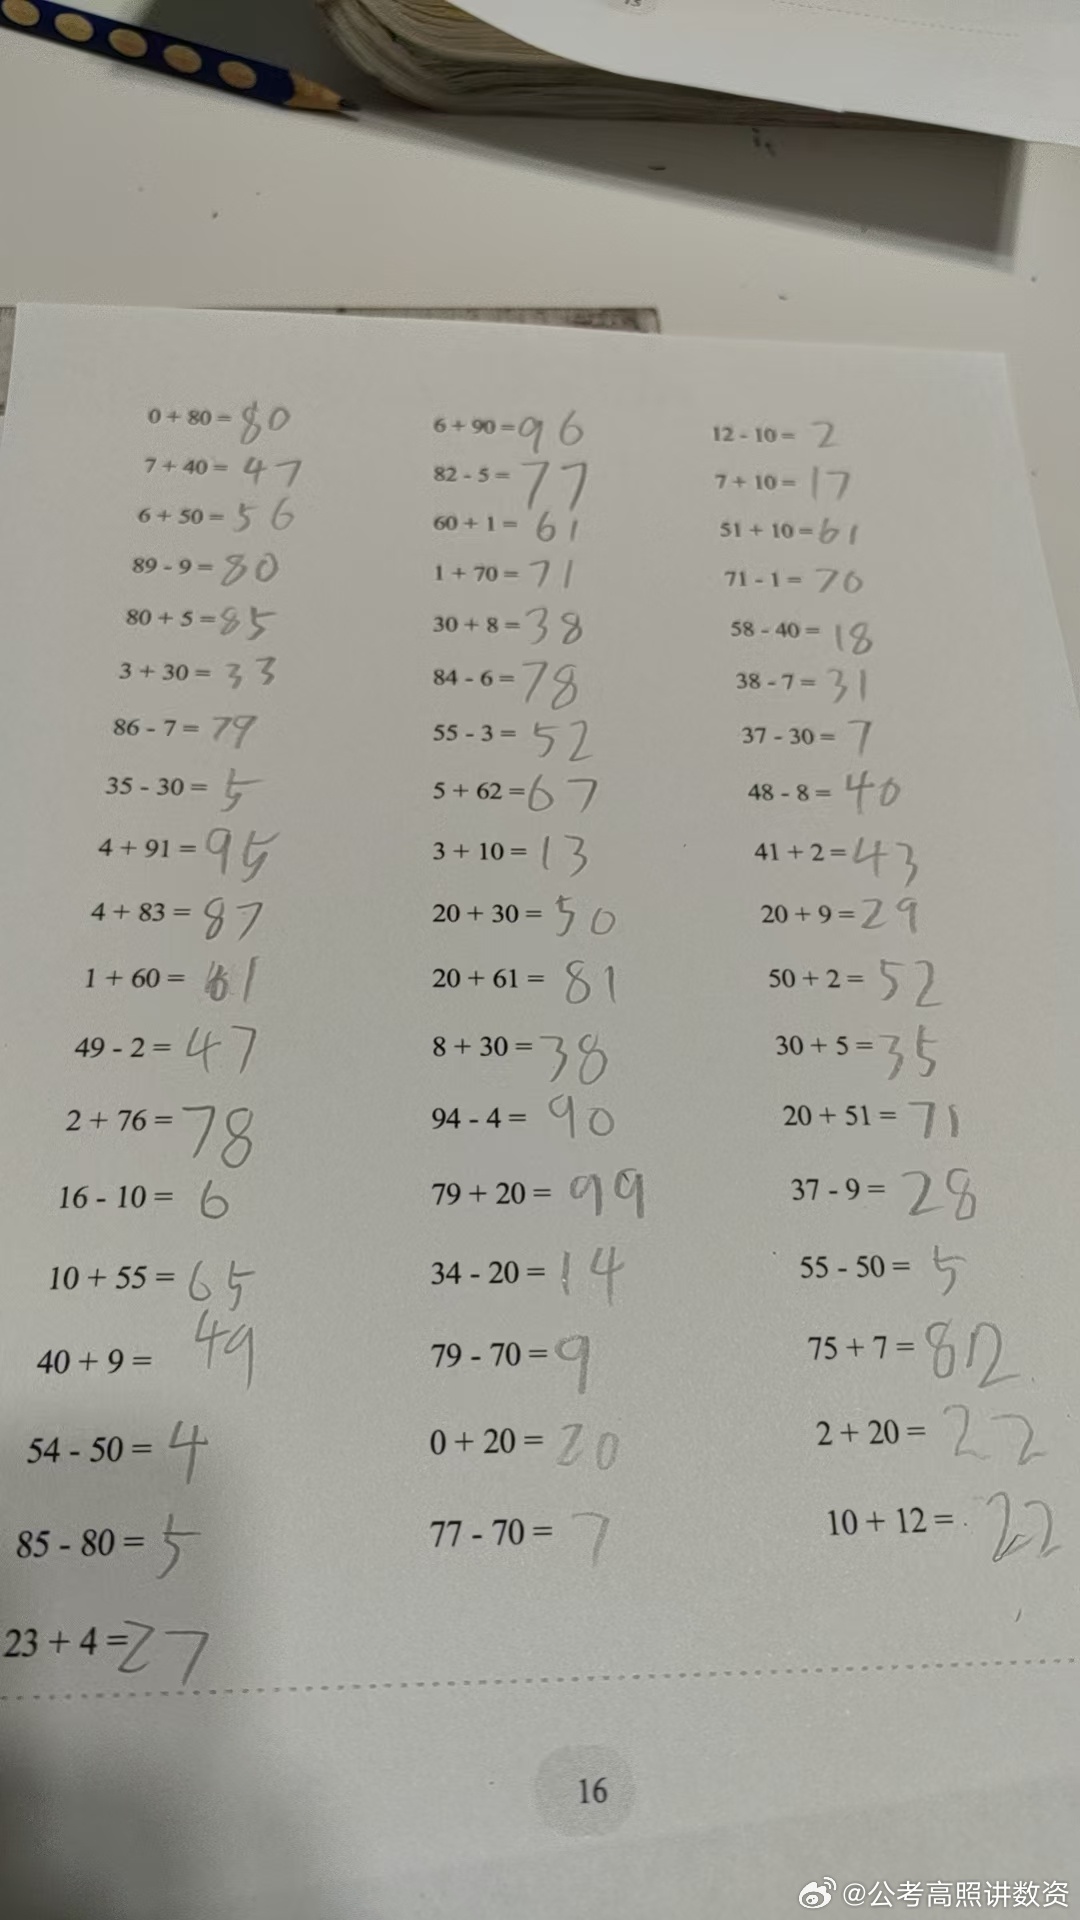 0 + 80 = 80 6 + 90 = 96 12 - 10 = 2
7 + 40 = 47 82 - 5 = 77 7 + 10 = 17
6 + 50 = 56 60 + 1 = 61 51 + 10 = 61
89 - 9 = 80 1 + 70 = 71 71 - 1 = 70
80 + 5 = 85 30 + 8 = 38 58 - 40 = 18
3 + 30 = 33 84 - 6 = 78 38 - 7 = 31
86 - 7 = 79 55 - 3 = 52 37 - 30 = 7
35 - 30 = 5 5 + 62 = 67 48 - 8 = 40
4 + 91 = 95 3 + 10 = 13 41 + 2 = 43
4 + 83 = 87 20 + 30 = 50 20 + 9 = 29
1 + 60 = 61 20 + 61 = 81 50 + 2 = 52
49 - 2 = 47 8 + 30 = 38 30 + 5 = 35
2 + 76 = 78 94 - 4 = 90 20 + 51 = 71
16 - 10 = 6 79 + 20 = 99 37 - 9 = 28
10 + 55 = 65 34 - 20 = 14 55 - 50 = 5
40 + 9 = 49 79 - 70 = 9 75 + 7 = 82
54 - 50 = 4 0 + 20 = 20 2 + 20 = 22
85 - 80 = 5 77 - 70 = 7 10 + 12 = 22
23 + 4 = 27
16
@公考高照讲数资